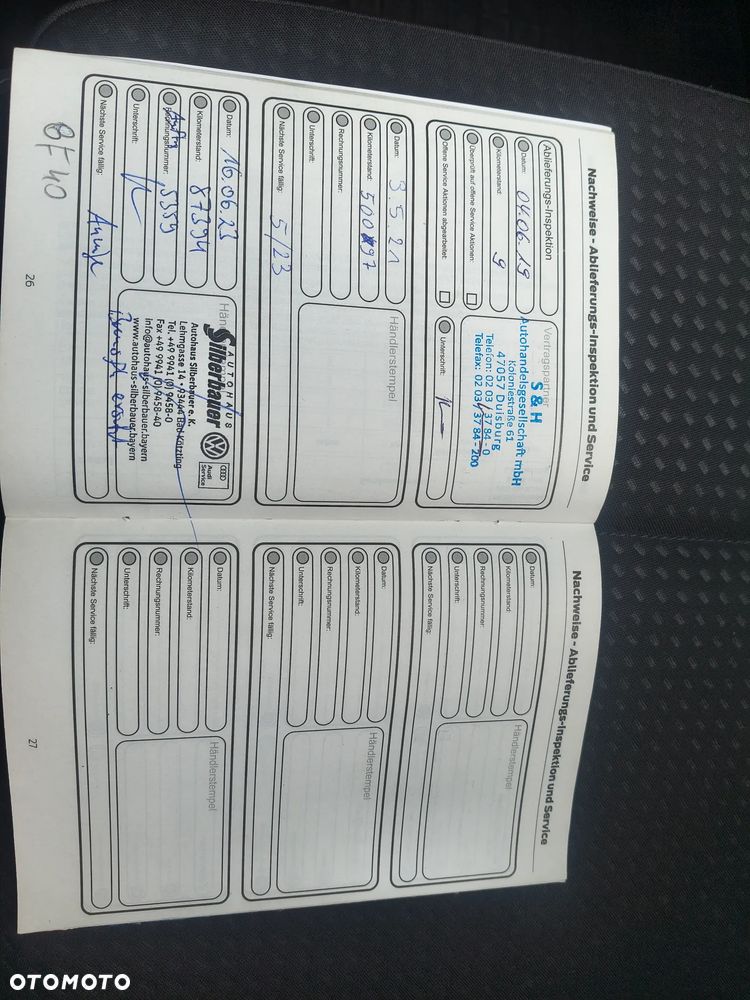 Nachweise - Ablieferungs-Inspektion und Service
Ablieferungs-Inspektion
Datum: 04.06.19
Kilometerstand: 9
Überprüft auf offene Service Aktionen:
Offene Service Aktionen abgearbeitet:
Vertragspartner
S & H
Autohandelsgesellschaft mbH
Koloniestraße 61
47057 Duisburg
Telefon: 02 03 / 37 84 - 0
Telefax: 02 03 / 37 84 - 200
Unterschrift:
Datum: 3.5.21
Kilometerstand: 50097
Rechnungsnummer:
Unterschrift:
Nächste Service fällig: 5/23
Händlerstempel
Datum: 16.06.23
Kilometerstand: 87394
Rechnungsnummer: 5359
Unterschrift:
Nächste Service fällig:
Händ
AUTOHAUS
Silberbauer
Audi
Service
Autohaus Silberbauer e. K.
Lehmgasse 14 · 93444 Bad Kötzting
Tel. +49 9941 (0) 9458-0
Fax +49 9941 (0) 9458-40
info@autohaus-silberbauer.bayern
www.autohaus-silberbauer.bayern
26
Nachweise - Ablieferungs-Inspektion und Service
Datum:
Kilometerstand:
Rechnungsnummer:
Unterschrift:
Nächste Service fällig:
Händlerstempel
Datum:
Kilometerstand:
Rechnungsnummer:
Unterschrift:
Nächste Service fällig:
Händlerstempel
Datum:
Kilometerstand:
Rechnungsnummer:
Unterschrift:
Nächste Service fällig:
Händlerstempel
27
OTOMOTO